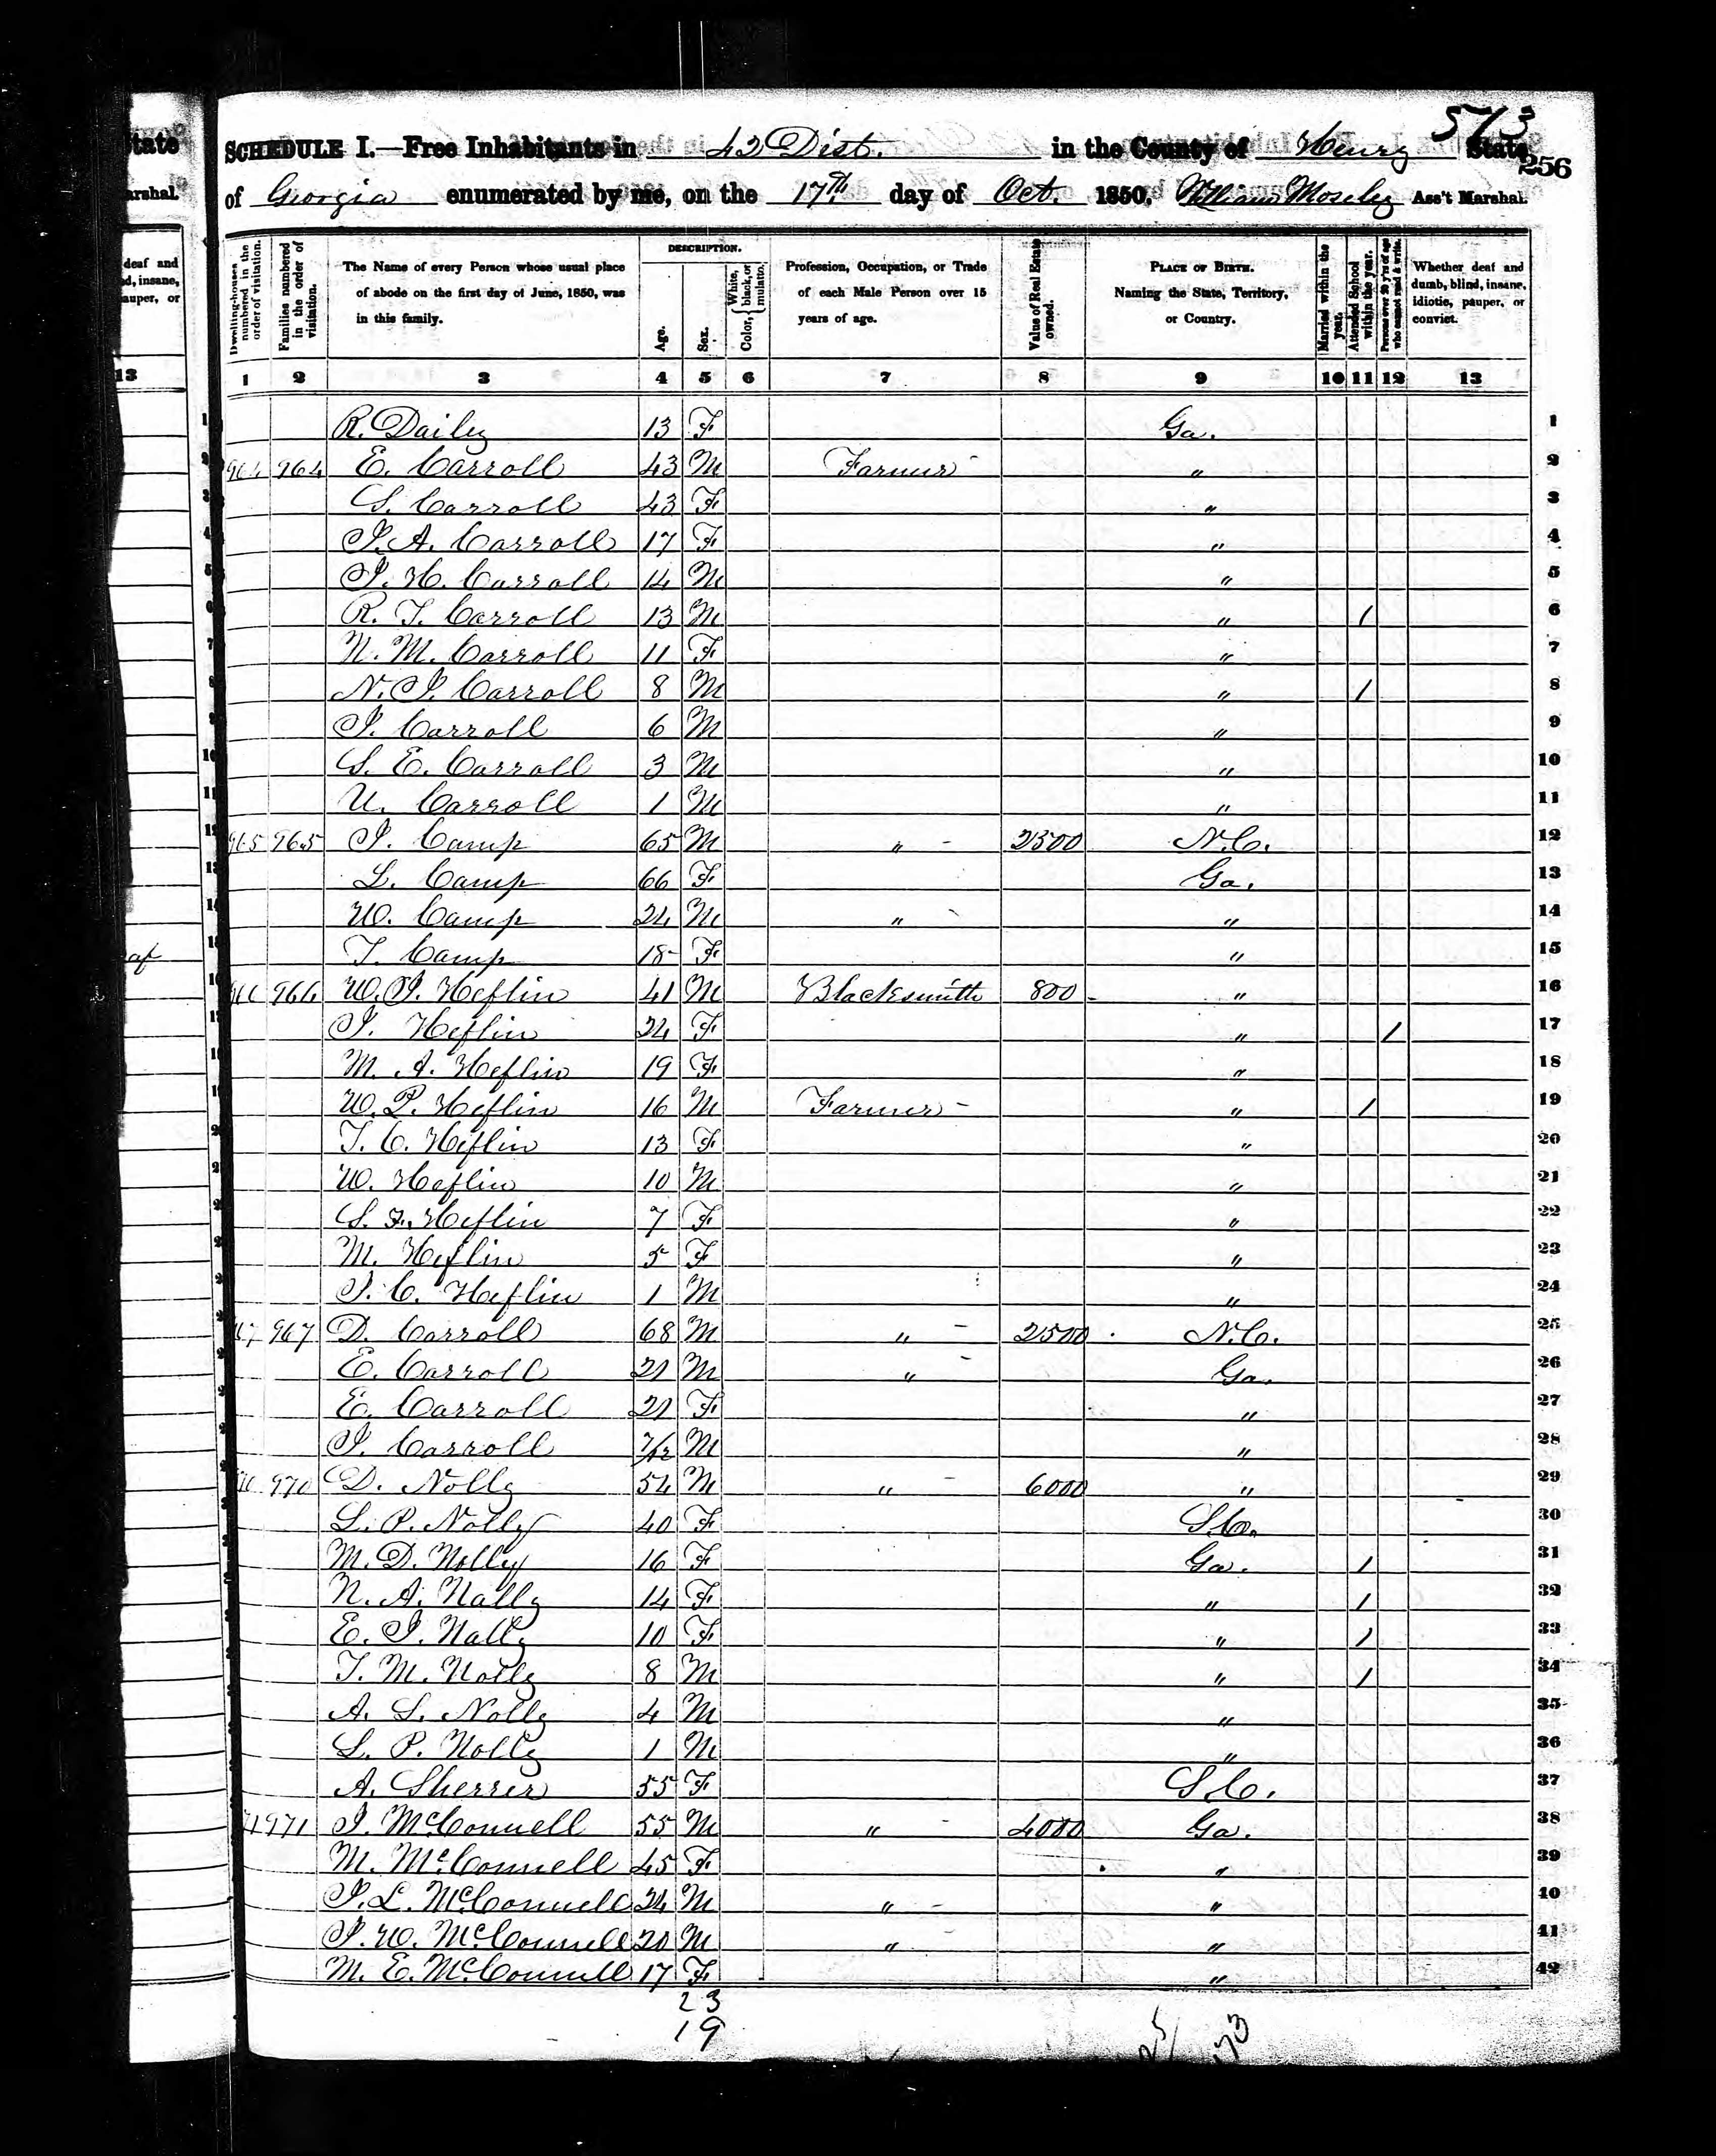 573
SCHEDULE I.—Free Inhabitants in 42 Dist. in the County of Henry State
256
of Georgia enumerated by me, on the 17th day of Oct. 1850. William Moseley Ass't Marshal.
Dwelling-houses numbered in the order of visitation.
Families numbered in the order of visitation.
The Name of every Person whose usual place of abode on the first day of June, 1850, was in this family.
DESCRIPTION.
Age.
Sex.
Color, { White, black, or mulatto.
Profession, Occupation, or Trade of each Male Person over 15 years of age.
Value of Real Estate owned.
PLACE OF BIRTH. Naming the State, Territory, or Country.
Married within the year.
Attended School within the year.
Persons over 20 y'rs of age who cannot read & write.
Whether deaf and dumb, blind, insane, idiotic, pauper, or convict.
1 2 3 4 5 6 7 8 9 10 11 12 13
R. Dailey 13 F Ga. 1
964 964 E. Carroll 43 M Farmer " 2
S. Carroll 43 F " 3
J. A. Carroll 17 F " 4
J. H. Carroll 14 M " 5
R. T. Carroll 13 M " / 6
N. M. Carroll 11 F " 7
N. J. Carroll 8 M " / 8
J. Carroll 6 M " 9
S. E. Carroll 3 M " 10
U. Carroll 1 M " 11
965 965 J. Camp 65 M " 2500 N.C. 12
L. Camp 66 F Ga. 13
W. Camp 24 M " " 14
T. Camp 18 F " 15
966 W. J. Heflin 41 M Blacksmith 800 " 16
J. Heflin 24 F " / 17
M. A. Heflin 19 F " 18
W. P. Heflin 16 M Farmer " / 19
T. C. Heflin 13 F " 20
W. Heflin 10 M " 21
S. F. Heflin 7 F " 22
M. Heflin 5 F " 23
J. C. Heflin 1 M " 24
967 D. Carroll 68 M " 2500 N.C. 25
E. Carroll 21 M " Ga. 26
E. Carroll 21 F " 27
J. Carroll 7/12 M " 28
970 D. Nolly 54 M " 6000 " 29
L. P. Nolly 40 F S.C. 30
M. D. Nolly 16 F Ga. / 31
N. A. Nally 14 F " / 32
E. J. Nally 10 F " / 33
T. M. Nolly 8 M " / 34
A. S. Nolly 4 M " 35
L. P. Nolly 1 M " 36
A. Sherrer 55 F S.C. 37
971 J. McConnell 55 M " 4000 Ga. 38
M. McConnell 45 F " 39
J. L. McConnell 24 M " " 40
J. W. McConnell 20 M " " 41
M. E. McConnell 17 F " 42
23
19